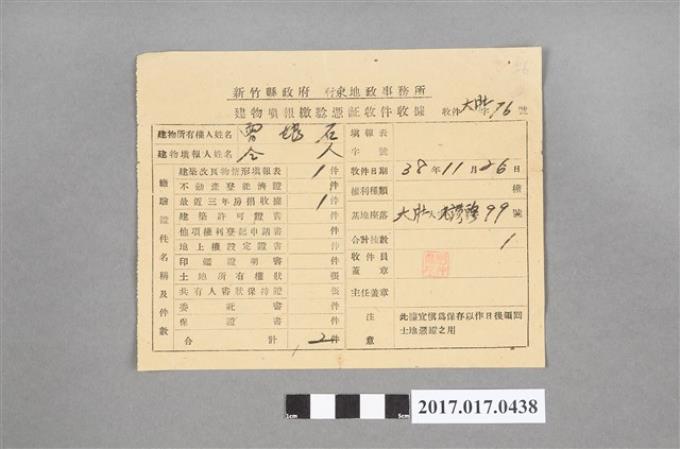 新竹縣政府 竹東地政事務所
建物填報繳驗憑証收件收據
收件 大肚 字 96 號
建物所有權人姓名 曾 石
建物填報人姓名 仝 人
繳驗證件名稱及件數
建築改良物情形填報表 1 件
不動產登記濟證 件
最近三年房捐收據 1 件
建築許可證書 件
他項權利登記申請書 件
地上權設定證書 件
印鑑證明書 件
土地所有權狀 張
共有人書狀保持證 張
委託書 件
保證書 件
合計 2 件
填報表字號
收件日期 38年11月26日
權利種類 權
基地座落 大肚 99 號
合計棟數 1
收件員蓋章
主任蓋章
注意
此據宜慎為保存以作日後領回
土地憑證之用
1cm 5cm
2017.017.0438